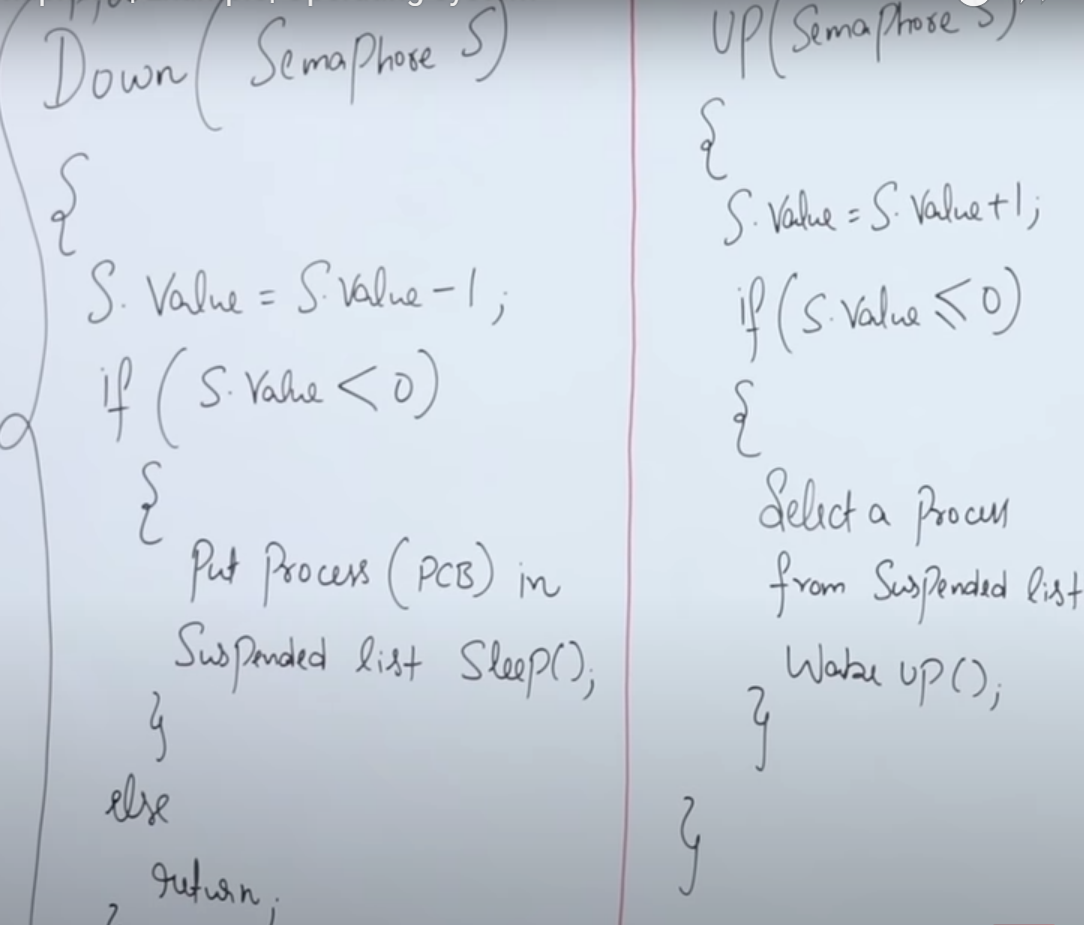 Down (Semaphore S)
{
S. Value = S. Value - 1;
if (S. Value < 0)
{
Put Process (PCB) in
Suspended list Sleep();
}
else
return;
}
UP(Semaphore S)
{
S. Value = S. Value+1;
if (S. Value ≤ 0)
{
Select a Process
from Suspended list
Wake UP();
}
}